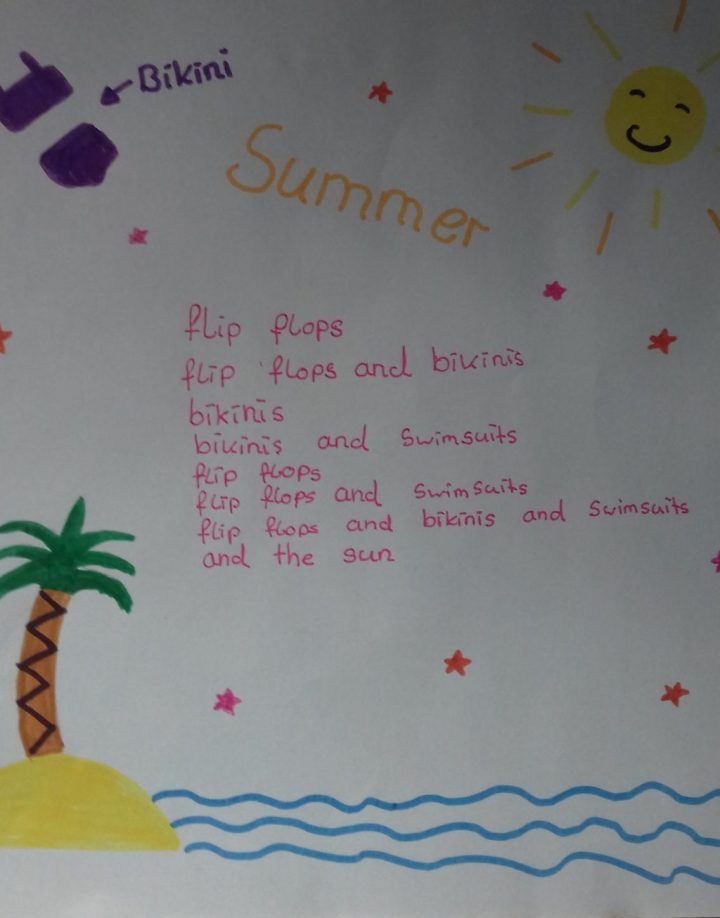 Bikini
Summer
flip flops
flip flops and bikinis
bikinis
bikinis and swimsuits
flip flops
flip flops and swimsuits
flip flops and bikinis and swimsuits
and the sun